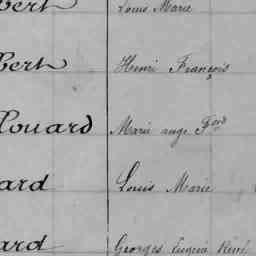 bert Louis Marie
bert Henri François
louard Marie ange Fois
ard Louis Marie
ard Georges Eugène René